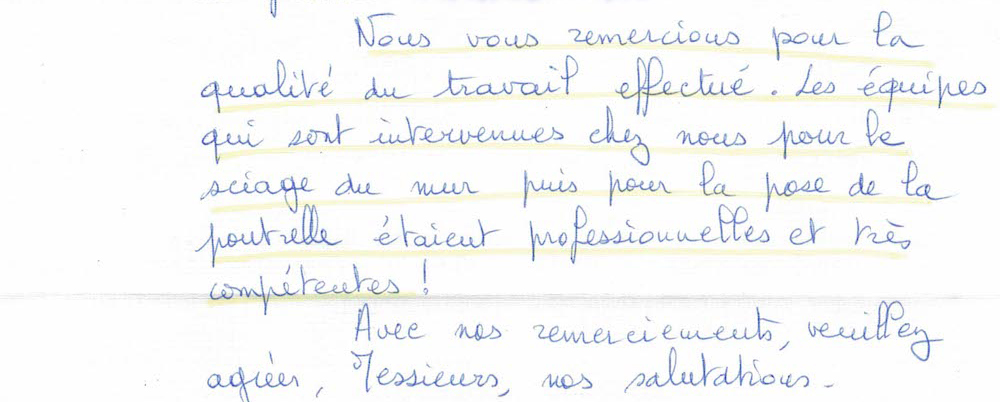 Nous vous remercions pour la
qualité du travail effectué. Les équipes
qui sont intervenues chez nous pour le
sciage du mur puis pour la pose de la
poutrelle étaient professionnelles et très
compétentes !
Avec nos remerciements, veuillez
agréer, Messieurs, nos salutations.